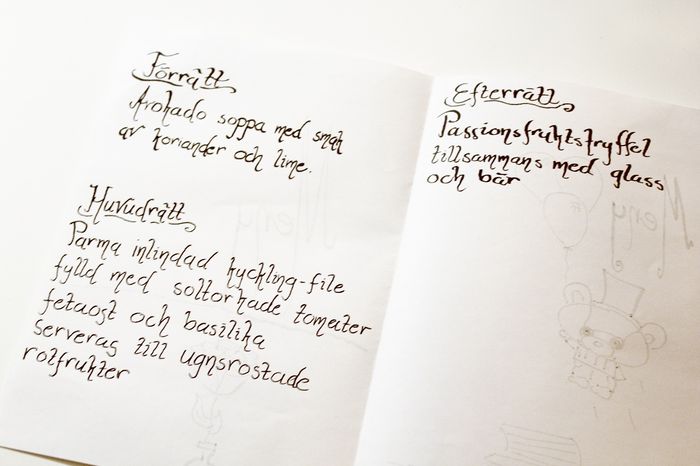 Förrätt
Avokado soppa med smak
av koriander och lime.
Huvudrätt
Parma inlindad kyckling-file
fylld med soltorkade tomater
fetaost och basilika
serveras till ugnsrostade
rotfrukter
Efterrätt
Passionsfruktstryffel
tillsammans med glass
och bär
Meny